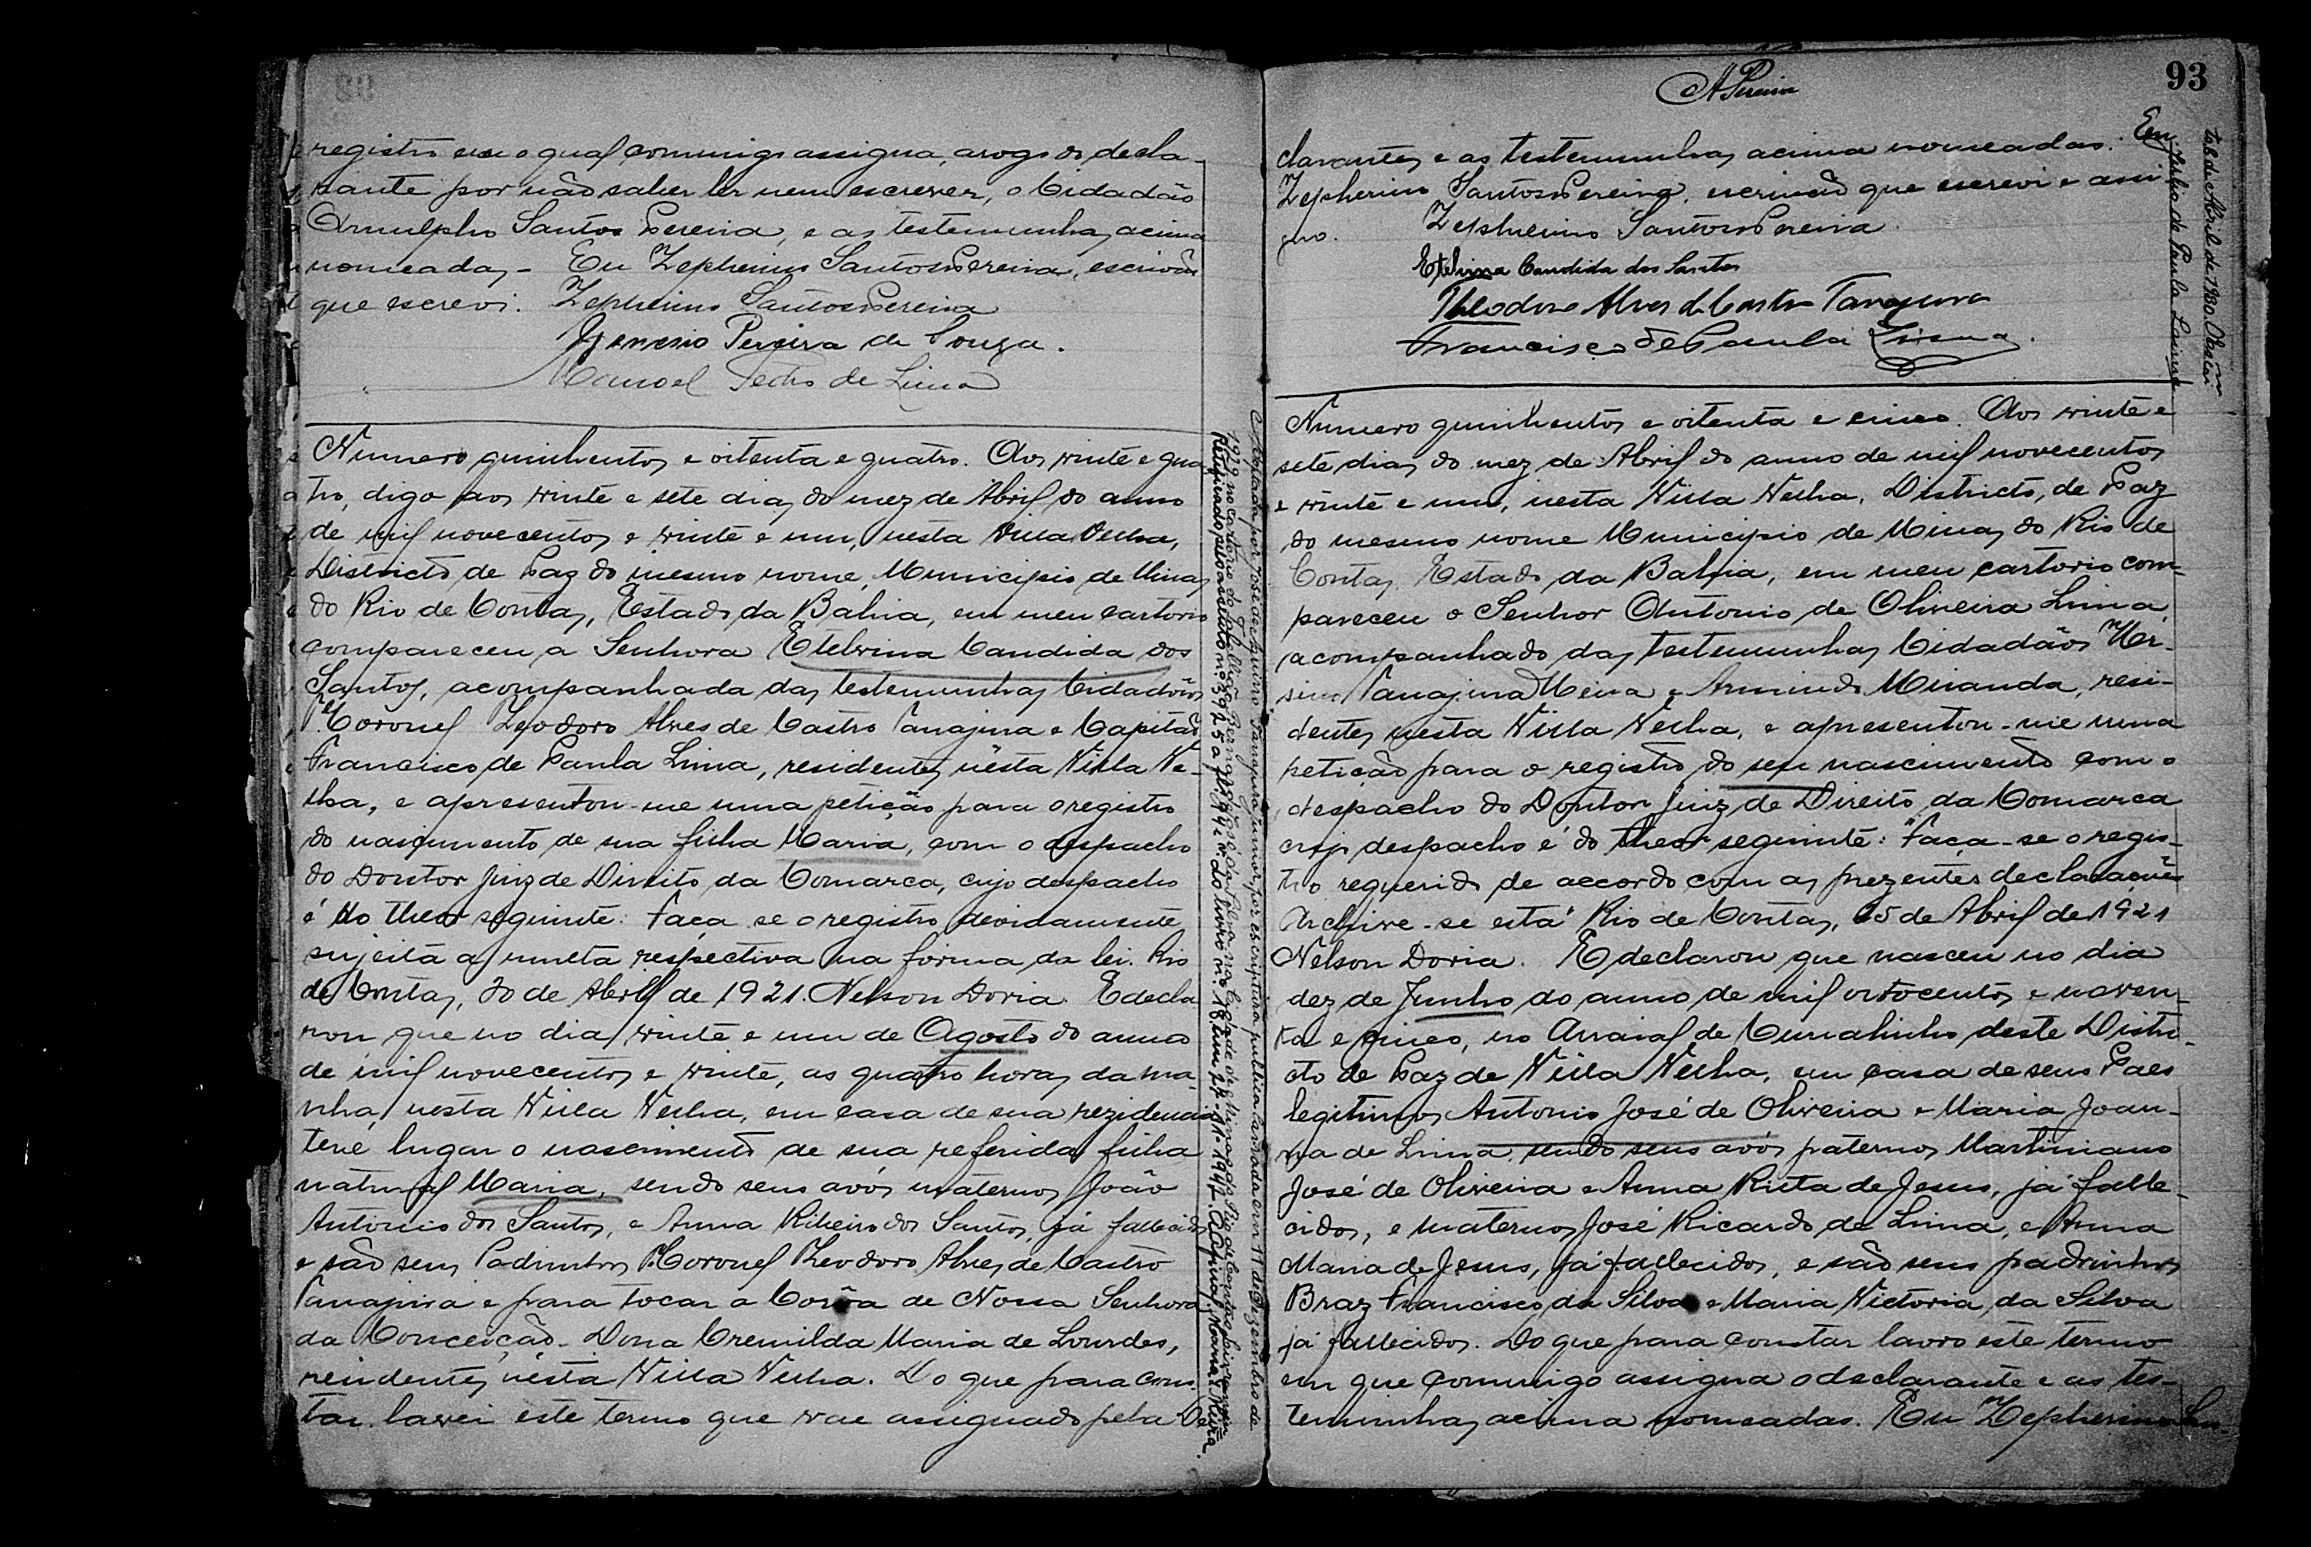 registro em o qual commigo assigna, a rogo do decla-
rante por não saber ler nem escrever, o Cidadão
Arnulpho Santos Pereira, e as testemunhas acima
nomeadas - Eu Zepherino Santos Pereira, escrivão
que escrevi. Zepherino Santos Pereira
Genesio Pereira de Souza.
Manoel Pedro de Lima
Numero quinhentos e oitenta e quatro. Aos vinte e qua
tro, digo aos vinte e sete dias do mez de Abril do anno
de mil novecentos e vinte e um, nesta Villa Velha,
Districto de Paz do mesmo nome, Municipio de Minas
do Rio de Contas, Estado da Bahia, em meu cartorio
compareceu a Senhora Etelvina Candida dos
Santos, acompanhada das testemunhas Cidadãos
Tel Coronel Theodoro Alves de Castro Tanajura e Capitão
Francisco de Paula Lima, residentes nesta Villa Ve-
lha, e apresentou-me uma petição para o registro
do nascimento de sua filha Maria, com o despacho
do Doutor Juiz de Direito da Comarca, cujo despacho
é do theor seguinte: Faça-se o registro devidamente
sujeita a multa respectiva na forma da lei. Rio
de Contas, 20 de Abril de 1921. Nelson Doria. E decla
rou que no dia vinte e um de Agosto do anno
de mil novecentos e vinte, as quatro horas da ma
nhã, nesta Villa Velha, em casa de sua rezidencia
teve lugar o nascimento de sua referida filha
natural Maria, sendo seus avós maternos João
Antonio dos Santos, e Anna Ribeiro dos Santos, já fallecidos
e são seus Padrinhos Coronel Theodoro Alves de Castro
Tanajura e para tocar a Corôa de Nossa Senhora
da Conceição - Dona Cremilda Maria de Lourdes,
residentes nesta Villa Velha. Do que para cons-
tar lavrei este termo que vae assignado pela De
Adotada por José de Aquino Tanajura Junior, por escriptura publica lavrada em 11 de Dezembro de
1929 no cartorio do tabellião
Retificado pelo assento nº 3925 a fl. 141 do livro nº 18 em 27-11-1947.
A Pereira
93
clarante, e as testemunhas acima nomeadas. Eu
Zepherino Santos Pereira, escrivão que escrevi e assi
gno. Zepherino Santos Pereira.
Etelvina Candida dos Santos
Theodoro Alves de Castro Tanajura
Francisco de Paula Lima.
tab de Abril de 1930. O escri
Numero quinhentos e oitenta e cinco. Aos vinte e
sete dias do mez de Abril do anno de mil novecentos
e vinte e um, nesta Villa Velha, Districto, de Paz
do mesmo nome Municipio de Minas do Rio de
Contas, Estado da Bahia, em meu cartorio com-
pareceu o Senhor Antonio de Oliveira Lima
acompanhado das testemunhas Cidadãos Ur-
sino Tanajura Meira e Armindo Miranda, resi-
dentes nesta Villa Velha, e apresentou-me uma
petição para o registro do seu nascimento com o
despacho do Doutor Juiz de Direito da Comarca
cujo despacho é do theor seguinte: "Faça-se o regis-
tro requerido de accordo com as prezentes declarações
Archive-se esta" Rio de Contas, 25 de Abril de 1921
Nelson Doria. E declarou que nasceu no dia
dez de Junho do anno de mil oitocentos e noven-
ta e cinco, no Arraial de Curralinho deste Distri-
cto de Paz de Villa Velha, em casa de seus Paes
legitimos Antonio José de Oliveira e Maria Joan-
na de Lima, sendo seus avós paternos Martiniano
José de Oliveira e Anna Rita de Jesus, já falle-
cidos, e maternos José Ricardo de Lima, e Anna
Maria de Jesus, já fallecidos, e são seus padrinhos
Braz Francisco da Silva e Maria Victoria da Silva
já fallecidos. Do que para constar lavro este termo
em que commigo assigna o declarante e as tes-
temunhas acima nomeadas. Eu Zepherino San-